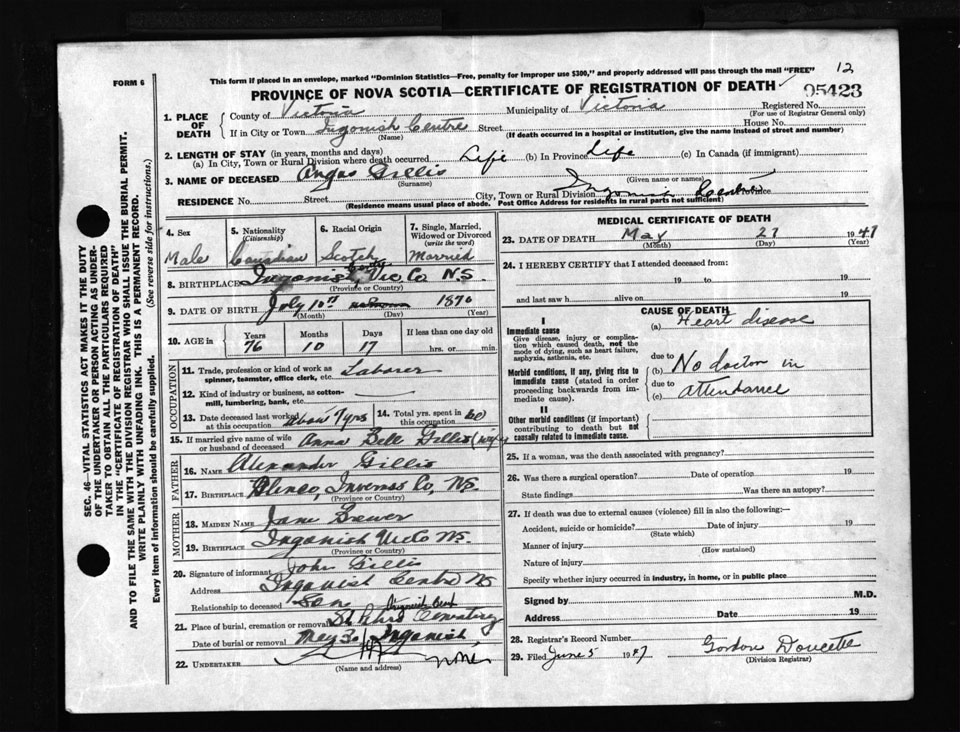 FORM 6
This form if placed in an envelope, marked "Dominion Statistics—Free, penalty for improper use $300," and properly addressed will pass through the mail "FREE"
12
PROVINCE OF NOVA SCOTIA—CERTIFICATE OF REGISTRATION OF DEATH
05423
1. PLACE OF DEATH
County of Victoria Municipality of Victoria Registered No.
(For use of Registrar General only)
If in City or Town Ingonish Centre Street House No.
(Name) (If death occurred in a hospital or institution, give the name instead of street and number)
2. LENGTH OF STAY (in years, months and days)
(a) In City, Town or Rural Division where death occurred Life (b) In Province Life (c) In Canada (if immigrant)
3. NAME OF DECEASED Angus Gillis
(Surname) (Given name or names)
RESIDENCE No. Street City, Town or Rural Division Ingonish Centre Province
(Residence means usual place of abode. Post Office Address for residents in rural parts not sufficient)
4. Sex Male
5. Nationality (Citizenship) Canadian
6. Racial Origin Scotch
7. Single, Married, Widowed or Divorced (write the word) Married
8. BIRTHPLACE Ingonish Centre, Vic Co N.S.
(Province or Country)
9. DATE OF BIRTH July 10th 1870
(Month) (Day) (Year)
10. AGE in Years Months Days If less than one day old
76 10 17 hrs. or min.
OCCUPATION
11. Trade, profession or kind of work as spinner, teamster, office clerk, etc. Laborer
12. Kind of industry or business, as cotton-mill, lumbering, bank, etc.
13. Date deceased last worked at this occupation about 7 yrs
14. Total yrs. spent in this occupation 60
15. If married give name of wife or husband of deceased Anna Bell Gillis (wife)
FATHER
16. NAME Alexander Gillis
17. BIRTHPLACE Inverness Co, N.S.
(Province or Country)
MOTHER
18. MAIDEN NAME Jane Brewer
19. BIRTHPLACE Ingonish Victo N.S.
(Province or Country)
20. Signature of informant John Gillis
Address Ingonish Centre N.S
Relationship to deceased Son
21. Place of burial, cremation or removal St Peters Cemetery
Date of burial or removal May 30/ 1947 Ingonish
22. UNDERTAKER none
(Name and address)
MEDICAL CERTIFICATE OF DEATH
23. DATE OF DEATH May 27 1947
(Month) (Day) (Year)
24. I HEREBY CERTIFY that I attended deceased from:
19 to 19
and last saw h alive on 19
CAUSE OF DEATH
I
Immediate cause
Give disease, injury or complication which caused death, not the mode of dying, such as heart failure, asphyxia, asthenia, etc.
(a) Heart disease
due to
Morbid conditions, if any, giving rise to immediate cause (stated in order proceeding backwards from immediate cause).
(b) No doctor in
due to
(c) attendance
II
Other morbid conditions (if important) contributing to death but not causally related to immediate cause.
25. If a woman, was the death associated with pregnancy?
26. Was there a surgical operation? Date of operation 19
State findings Was there an autopsy?
27. If death was due to external causes (violence) fill in also the following:—
Accident, suicide or homicide? Date of injury 19
(State which)
Manner of injury
(How sustained)
Nature of injury
Specify whether injury occurred in industry, in home, or in public place
Signed by M.D.
Address Date 19
28. Registrar's Record Number
29. Filed June 5 1947 Gordon Doucette
(Division Registrar)
SEC. 46—VITAL STATISTICS ACT MAKES IT THE DUTY
OF THE UNDERTAKER OR PERSON ACTING AS UNDER-
TAKER TO OBTAIN ALL THE PARTICULARS REQUIRED
IN THE "CERTIFICATE OF REGISTRATION OF DEATH"
AND TO FILE THE SAME WITH THE DIVISION REGISTRAR WHO SHALL ISSUE THE BURIAL PERMIT.
WRITE PLAINLY WITH UNFADING INK. THIS IS A PERMANENT RECORD.
Every item of information should be carefully supplied. (See reverse side for instructions.)